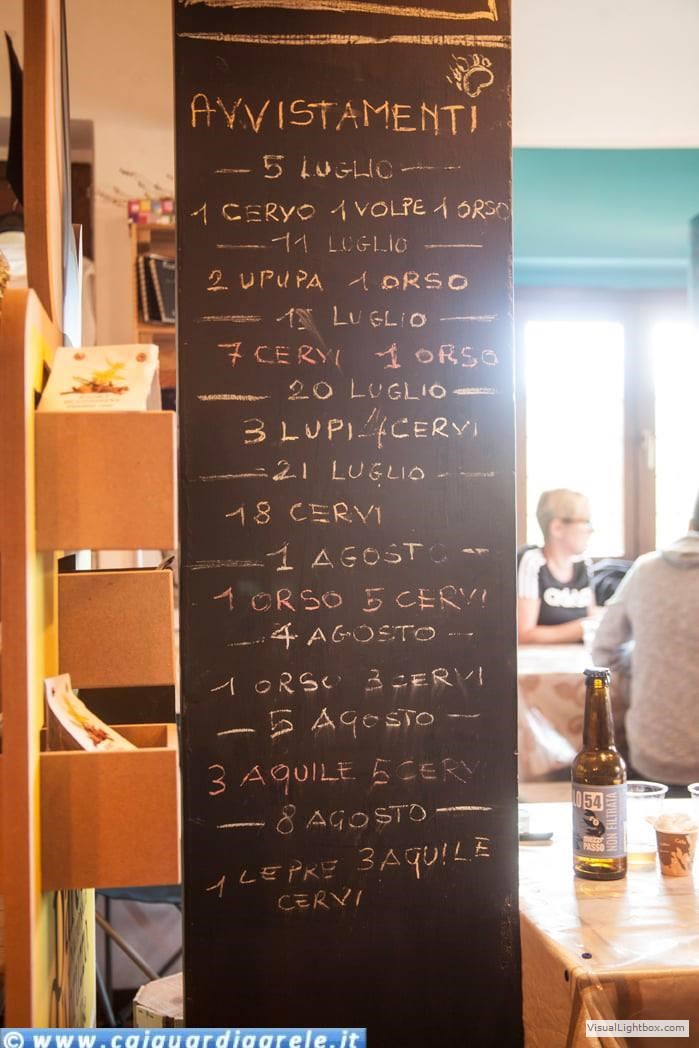 AVVISTAMENTI
5 LUGLIO
1 CERVO 1 VOLPE 1 ORSO
11 LUGLIO
2 UPUPA 1 ORSO
LUGLIO
7 CERVI 1 ORSO
20 LUGLIO
3 LUPI 4 CERVI
21 LUGLIO
18 CERVI
1 AGOSTO
1 ORSO 5 CERVI
4 AGOSTO
1 ORSO 3 CERVI
5 AGOSTO
3 AQUILE 5 CERV
8 AGOSTO
1 LEPRE 3 AQUILE
CERVI
LO 54
MEZZO
PASSO
NON FILTRATA
© www.caiguardiagrele.it
VisualLightbox.com